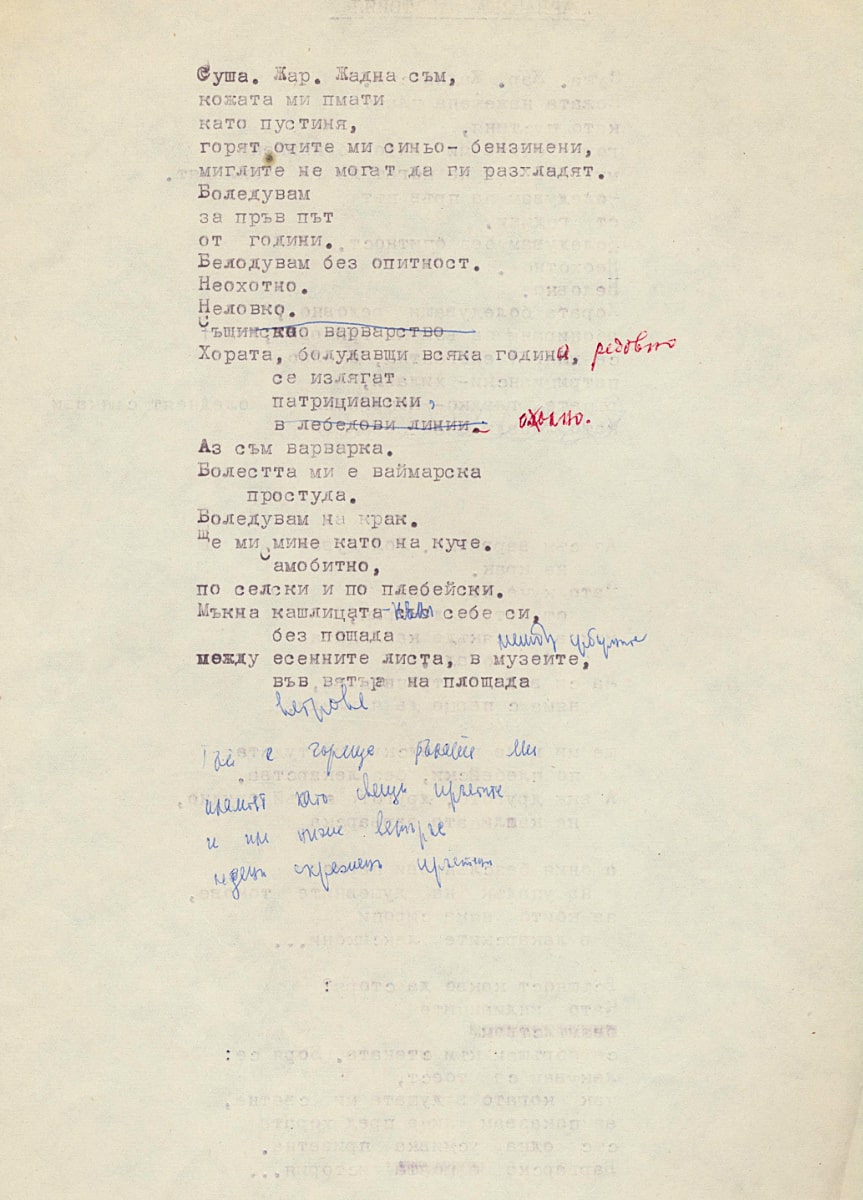 Суша. Жар. Жадна съм,
кожата ми пмати
като пустиня,
горят очите ми синьо- бензинени,
миглите не могат да ги разхладят.
Боледувам
за пръв път
от години.
Белодувам без опитност.
Неохотно.
Неловко.
Същинско варварство
Хората, болудавщи всяка година, редовно
се излягат
патрициански,
в лебедови линии. охолно.
Аз съм варварка.
Болестта ми е ваймарска
простуда.
Боледувам на крак.
Ще ми мине като на куче.
Самобитно,
по селски и по плебейски.
Мъкна кашлицата със себе си,
без пощада
между
между есенните листа, в музеите,
във вятъра на площада
ветрове
с горещо ми
като
и им